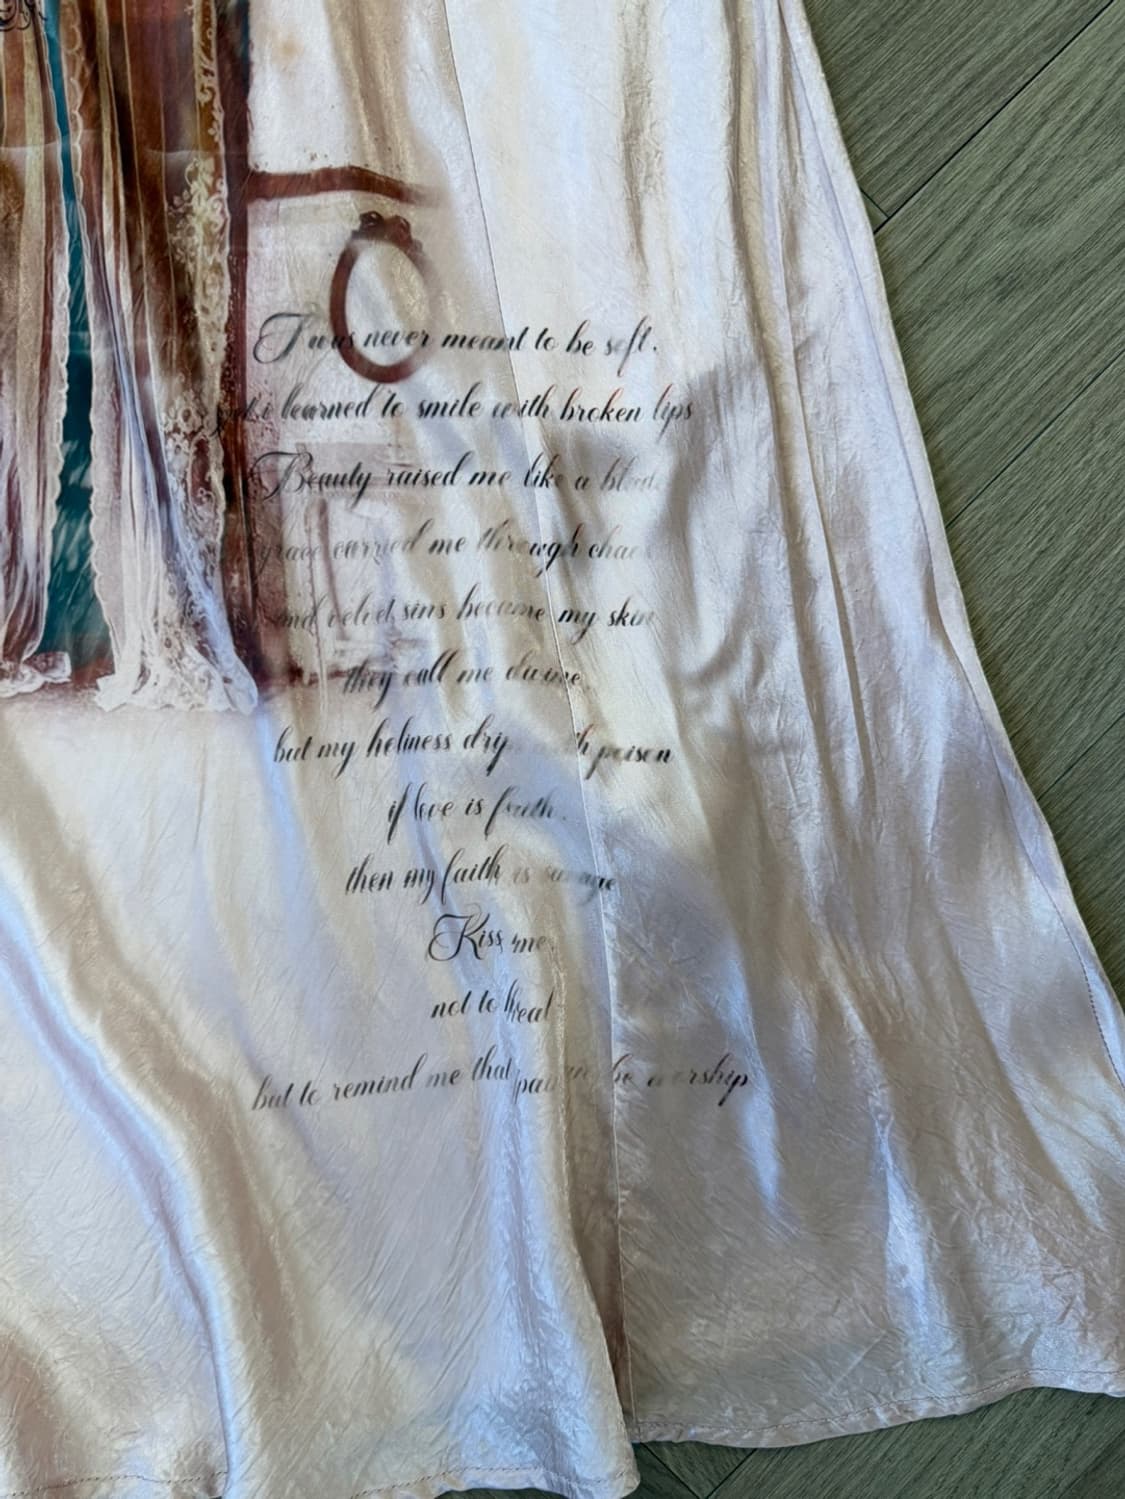 I was never meant to be soft.
yet i learned to smile with broken lips
Beauty raised me like a
grace carried me through
and velvet sins became my skin
they call me divine
but my holiness drips with poison
if love is faith.
then my faith is savage
Kiss me
not to
but to remind me that pain be worship